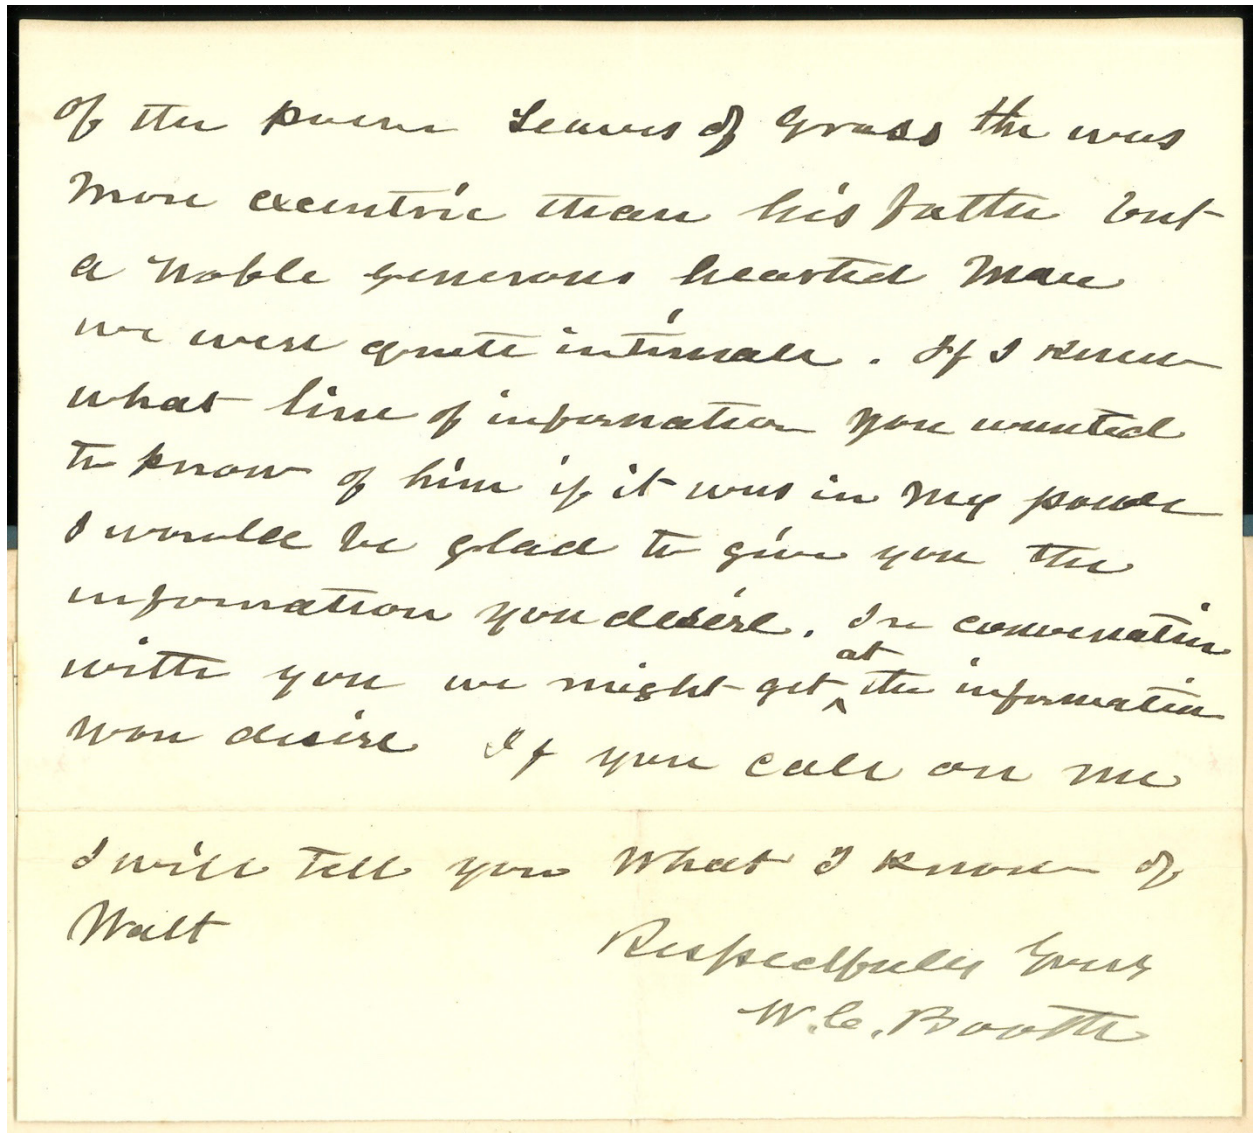 of the poem Leaves of Grass the was
more excentric than his father but
a noble generous hearted man
we were quite intimate. If I knew
what line of information you wanted
to know of him if it was in my power
I would be glad to give you the
information you desire. In conversation
with you we might get at the information
you desire If you call on me
I will tell you what I know of
Walt
Respectfully Yours
W. C. Booth